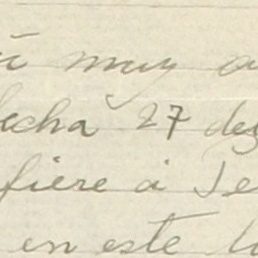 muy
fecha 27 de
fiere á Se
en este